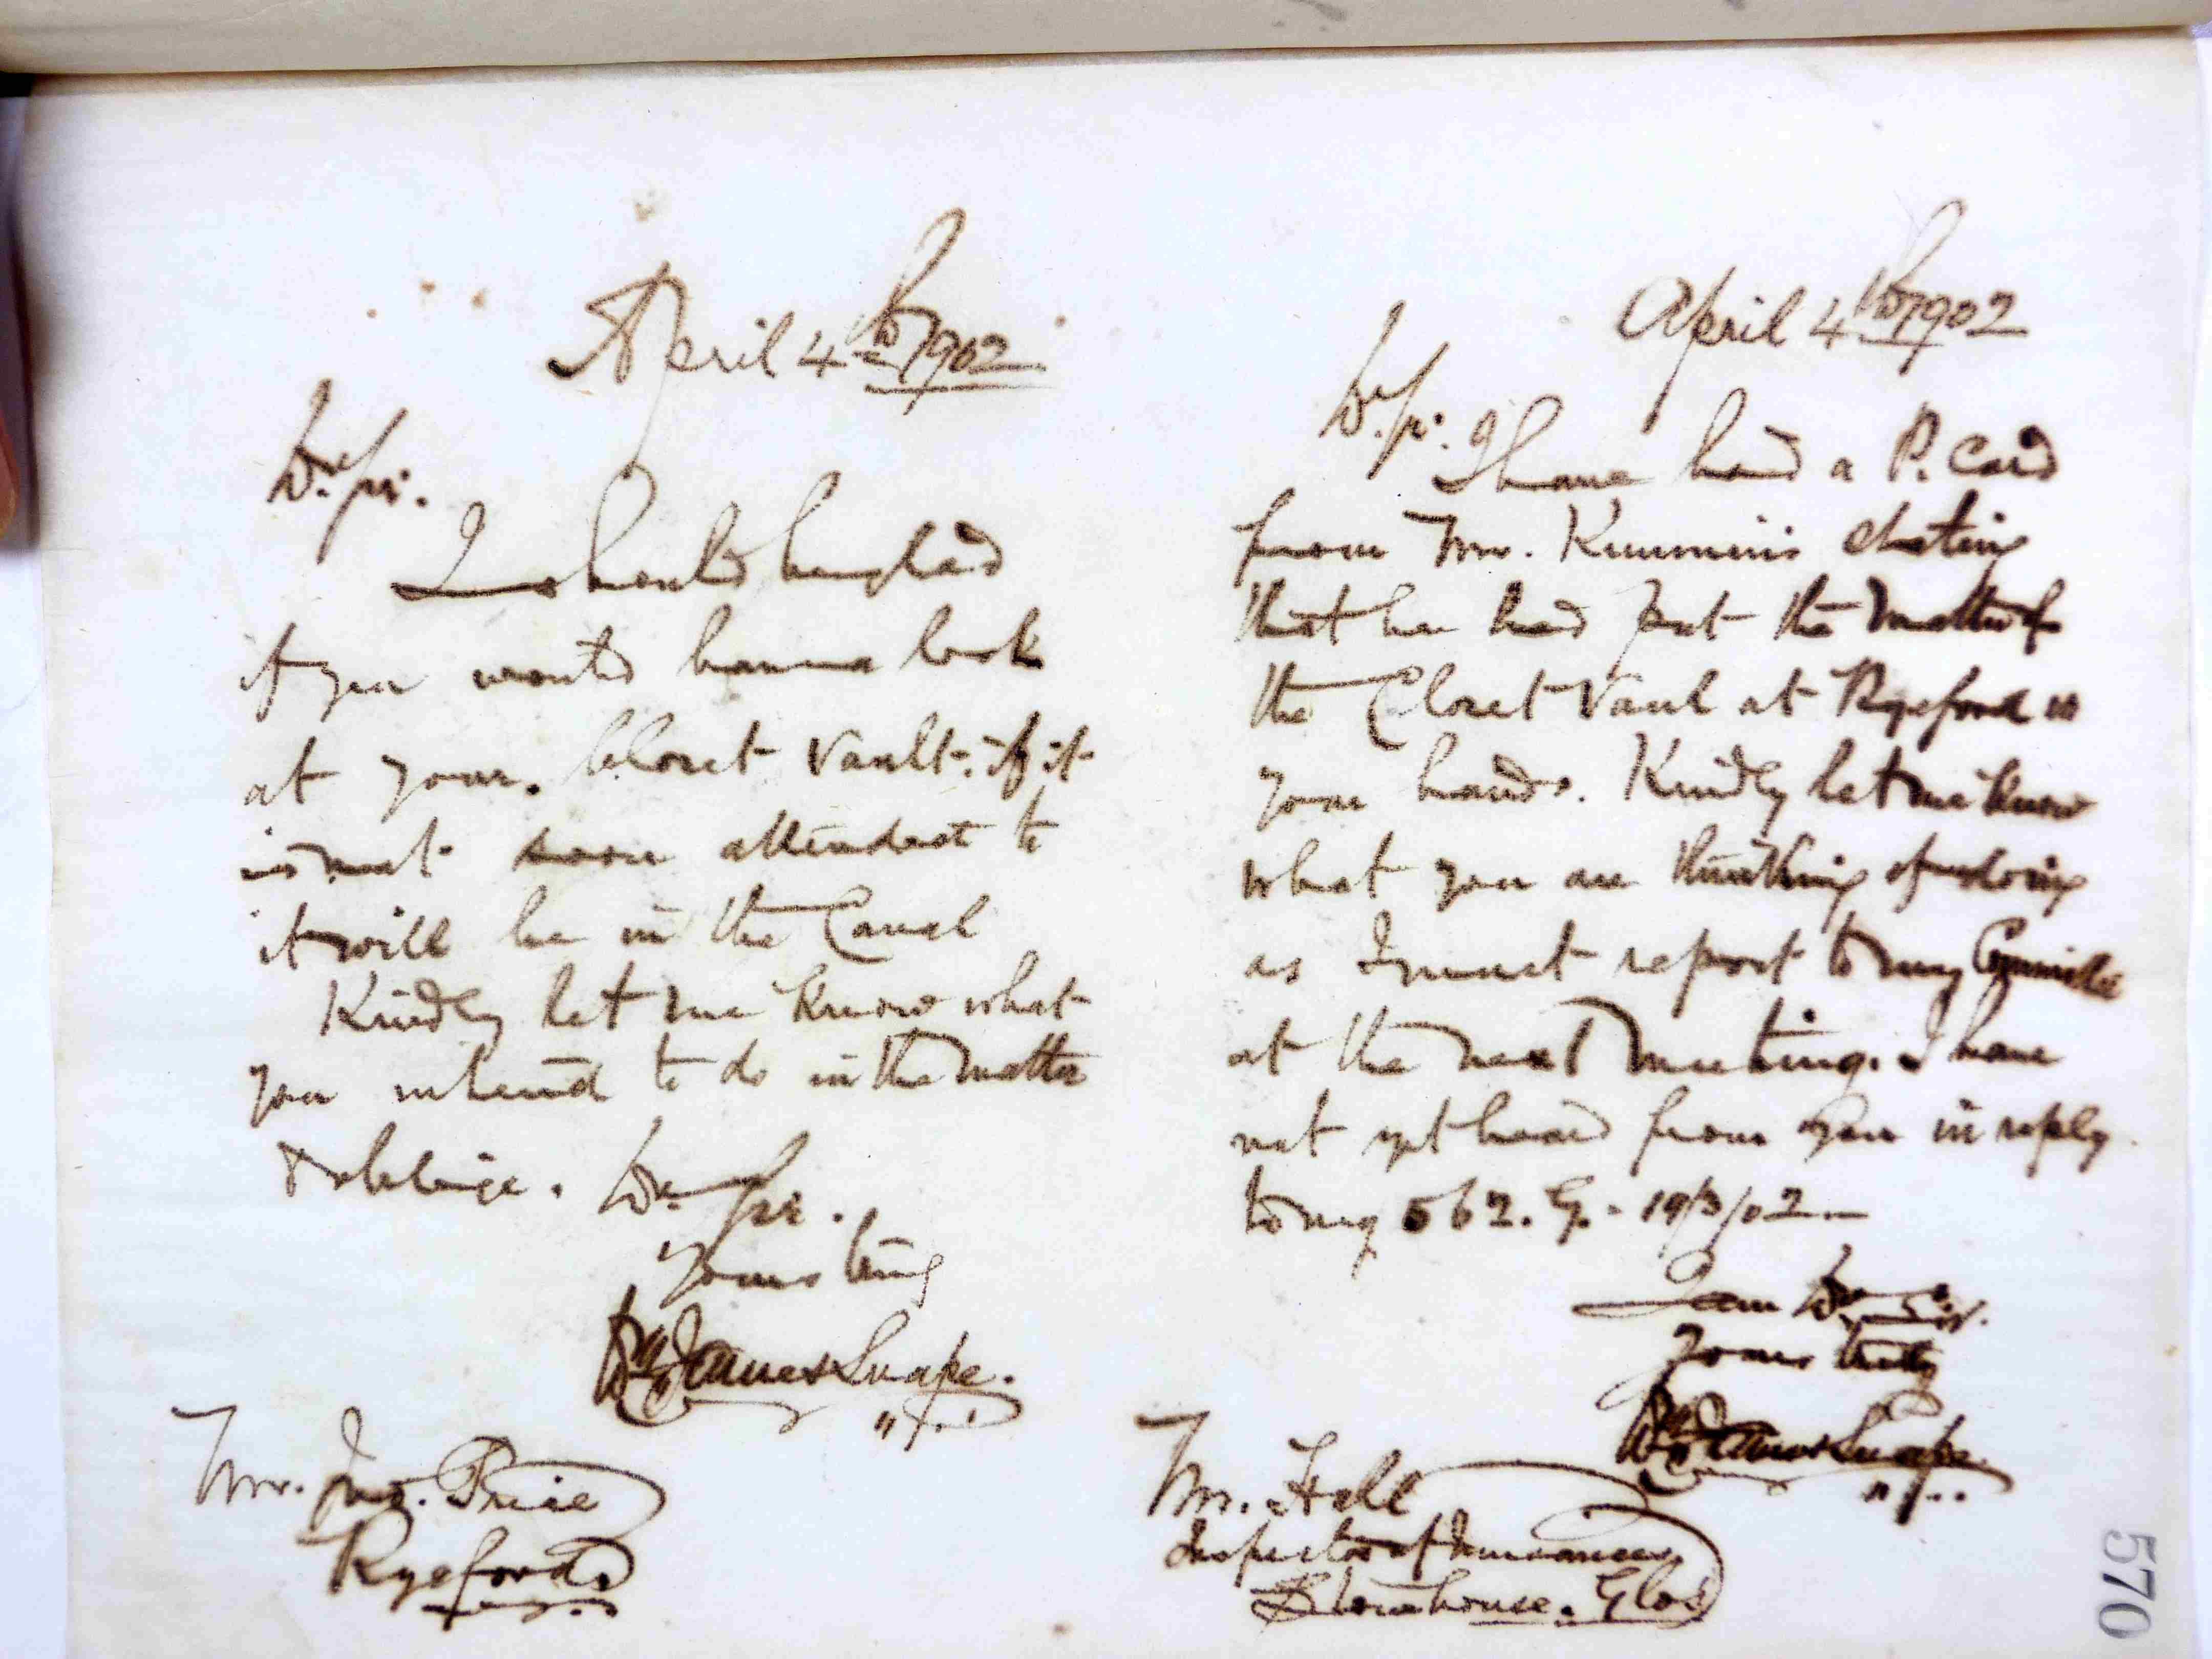 April 4th 1902
Dr. Sir.
I should be glad
if you would have a look
at your. Closet Vault. if it
is not soon attended to
it will be in the Canal
Kindly let me know what
you intend to do in the matter
& oblige. Dr. Sir.
Yours truly
Wm. James Snape.
Mr. Jno. Price
Ryeford
April 4th 1902
Dr. Sir. I have had a P. Card
from Mr. stating
that he had put the matter of
the Closet Vault at Ryeford in
your hands. Kindly let me know
what you are thinking of doing
as I must report to my Committee
at the next meeting. I have
not yet heard from you in reply
to my 562. G. - 19/3/02 —
I am Dr. Sir.
Yours truly
Wm. James Snape.
Mr. Hall
Inspector of Nuisances
Stonehouse. Glos
570